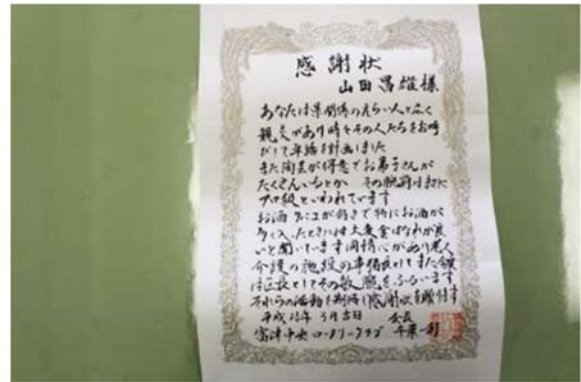 感謝状
山田昌雄様
あなたは県関係のえらい人と広く
親交があり時々その人たちをお呼
びして卓話を計画しました
また陶芸が得意でお弟子さんが
たくさんいるとか その腕前はまさに
プロ級といわれています
お酒 タバコが好きで特にお酒が
多く入ったときには大変金ばなれが良
いと聞いています 同情心があり老人
介護の施設の事務長としてまた
は区長としてその敏腕をふるいます
それらの活動を 感謝状を贈ります
平成 年3月吉日 会長
富津中央ロータリークラブ 千葉一利